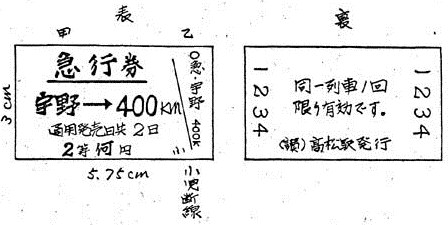 表
甲 乙
急行券
宇野→400KM
通用発売日共2日
2等何円
〇急・宇野 400K
小
3cm
5.75cm
小児断線
裏
1234
同一列車1回
限り有効です。
高松駅発行
1234